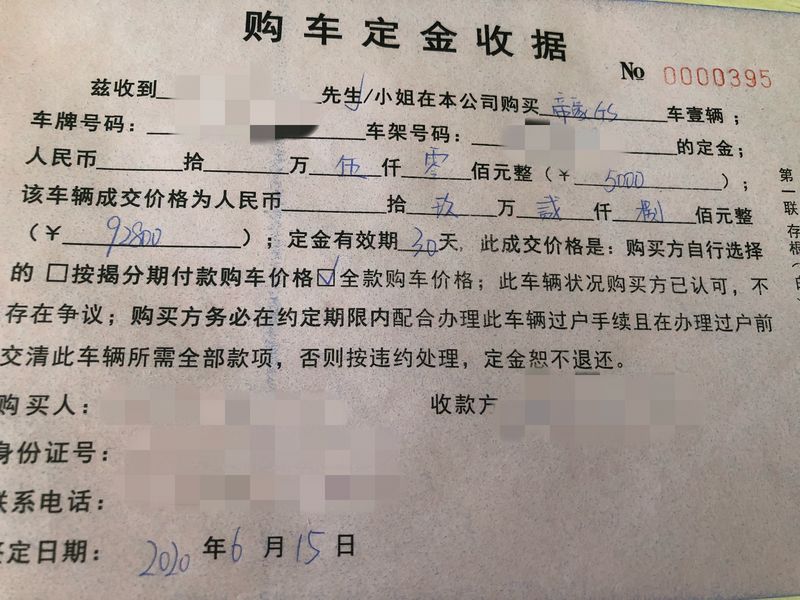 购车定金收据
No 0000395
兹收到 先生/小姐在本公司购买 帝豪GS 车壹辆；
车牌号码： 车架号码： 的定金；
人民币 拾 万 伍 仟 零 佰元整（￥ 5000 ）；
该车辆成交价格为人民币 拾 玖 万 贰 仟 捌 佰元整
（￥ 92800 ）；定金有效期 30 天，此成交价格是：购买方自行选择
的 □按揭分期付款购车价格☑全款购车价格；此车辆状况购买方已认可，不
存在争议；购买方务必在约定期限内配合办理此车辆过户手续且在办理过户前
交清此车辆所需全部款项，否则按违约处理，定金恕不退还。
购买人： 收款方
身份证号：
联系电话：
签定日期： 2020 年 6 月 15 日
第一联存根